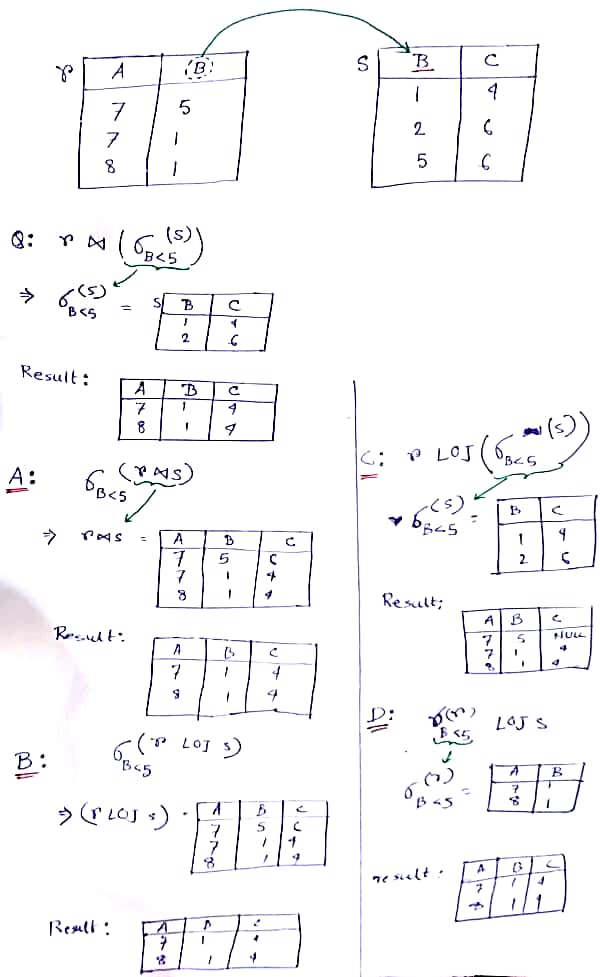 r
A (B)
7 5
7 1
8 1
S
B C
1 4
2 6
5 6
Q: r ⋈ (σ B<5 (S))
⇒ σ B<5 (S) = S
B C
1 4
2 6
Result:
A B C
7 1 4
8 1 4
A: σ B<5 (r⋈S)
⇒ r⋈s =
A B C
7 5 6
7 1 4
8 1 4
Result:
A B C
7 1 4
8 1 4
B: σ B<5 (r LOJ s)
⇒ (r LOJ s) .
A B C
7 5 6
7 1 4
8 1 4
Result:
A B C
7 1 4
8 1 4
C: r LOJ (σ B<5 (S))
σ B<5 (S) =
B C
1 4
2 6
Result;
A B C
7 5 NULL
7 1 4
8 1 4
D: σ(r) B<5 LOJ S
σ B<5 (r) =
A B
7 1
8 1
result.
A B C
7 1 4
1 4